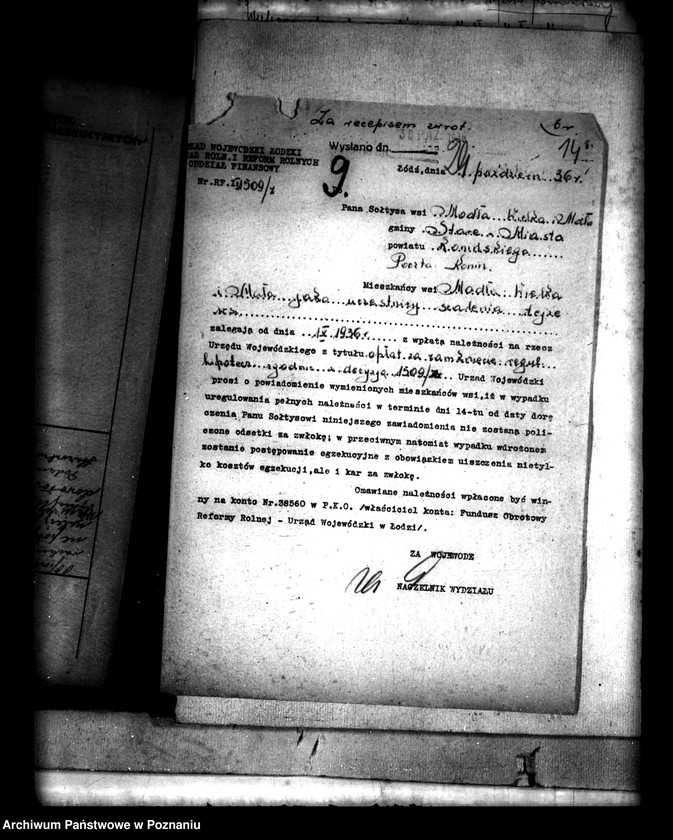 Za recepisem zwrot.
6 r.
Wysłano dn
30 PAŹ
14
URZĄD WOJEWÓDZKI ŁÓDZKI
DZIAŁ ROLN. I REFORM ROLNYCH
ODDZIAŁ FINANSOWY
9
Łódź, dnia 29 październ. 36 r.
Nr. RF. 1509/
Pana Sołtysa wsi Modła Wielka i Mała
gminy Stare Miasto
powiatu Konińskiego
Poczta Konin.
Mieszkańcy wsi Modła Wielka
i Mała jako uczestnicy scalenia tejże
wsi
zalegają od dnia 1 X 1936 r. z wpłatą należności na rzecz
Urzędu Wojewódzkiego z tytułu opłat za zamknięcie reguł.
hipotecz. zgodnie z decyzją 1509/ Urząd Wojewódzki
prosi o powiadomienie wymienionych mieszkańców wsi, iż w wypadku
uregulowania pełnych należności w terminie dni 14-tu od daty dorę
czenia Panu Sołtysowi niniejszego zawiadomienia nie zostaną poli-
czone odsetki za zwłokę; w przeciwnym natomiat wypadku wdrożonem
zostanie postępowanie egzekucyjne z obowiązkiem uiszczenia nietyl-
ko kosztów egzekucji, ale i kar za zwłokę.
Omawiane należności wpłacone być win-
ny na konto Nr. 38560 w P.K.O. /właściciel konta: Fundusz Obrotowy
Reformy Rolnej - Urząd Wojewódzki w Łodzi/.
ZA WOJEWODĘ
NACZELNIK WYDZIAŁU
Archiwum Państwowe w Poznaniu